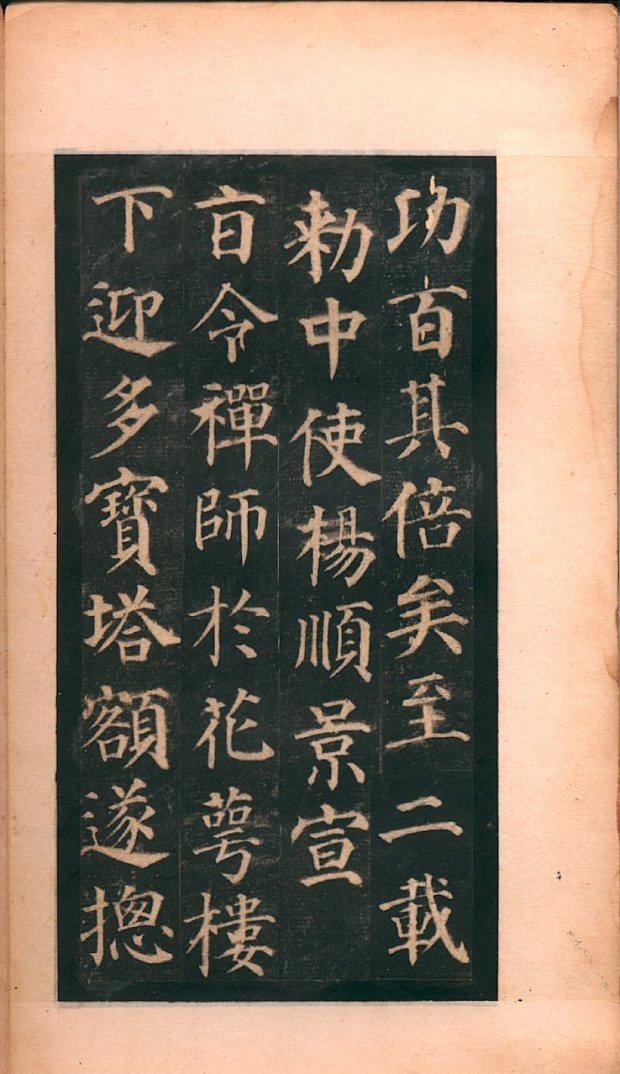 功百其倍矣至二載
勑中使楊順景宣
旨令禪師於花萼樓
下迎多寶塔額遂揔